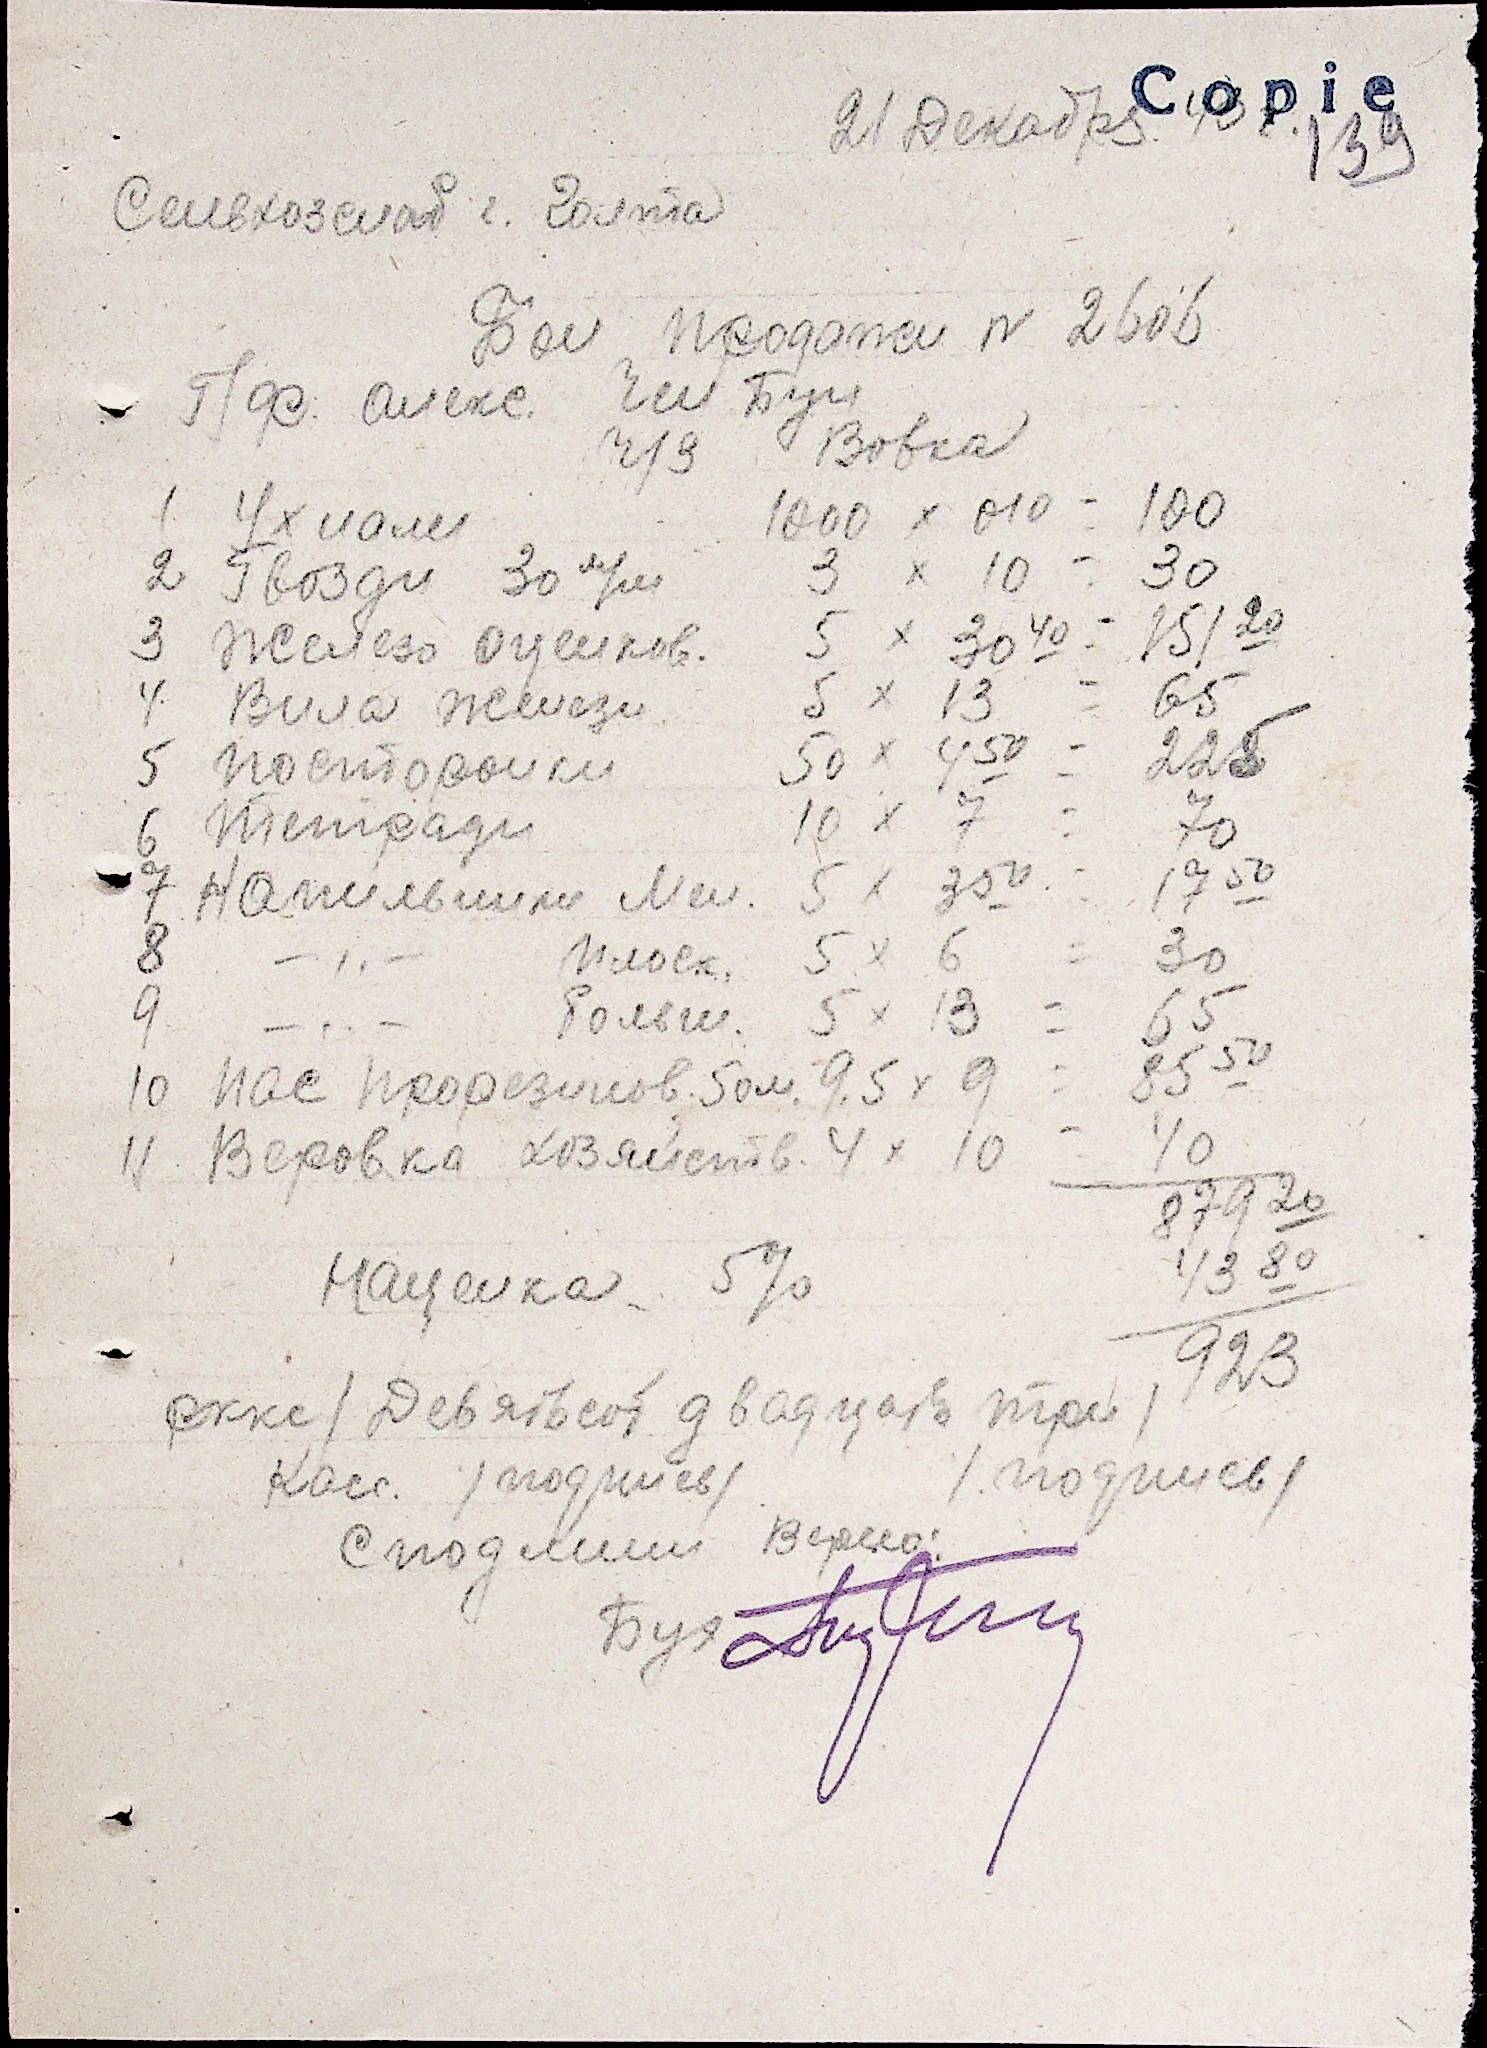 Copie
21 Декабря 43 г.
139
Сельхозснаб г. Голта
Бон продажи N 2606
Пр. Алекс. Ген Буг
Ч/З Вовка
1 Ухнали 1000 x 010 = 100
2 Гвозди 30 м/м 3 x 10 = 30
3 Железо оцинков. 5 x 30 40 = 151 20
4. Вила железн 5 x 13 = 65
5 Посторонки 50 x 4 50 = 225
6 Тетради 10 x 7 = 70
7 Напильники Мел. 5 x 3 50 = 17 50
8 -,,- плоск. 5 x 6 = 30
9 -,,- больш. 5 x 13 = 65
10 Пас прорезинов. 50м. 9.5 x 9 = 85 50
11 Веровка хозяйств. 4 x 10 = 40
879 20
Наценка 5% 43 80
923
рккс / Девятьсот двадцать три /
Касс. /подпись/ /подпись/
С подлинн Верно:
Бух